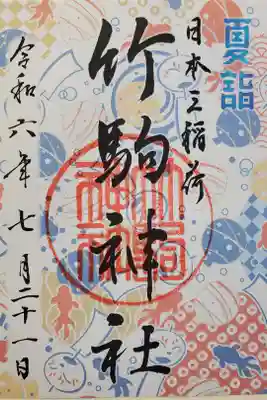 夏詣
日本三稲荷
竹駒神社
令和六年七月二十一日